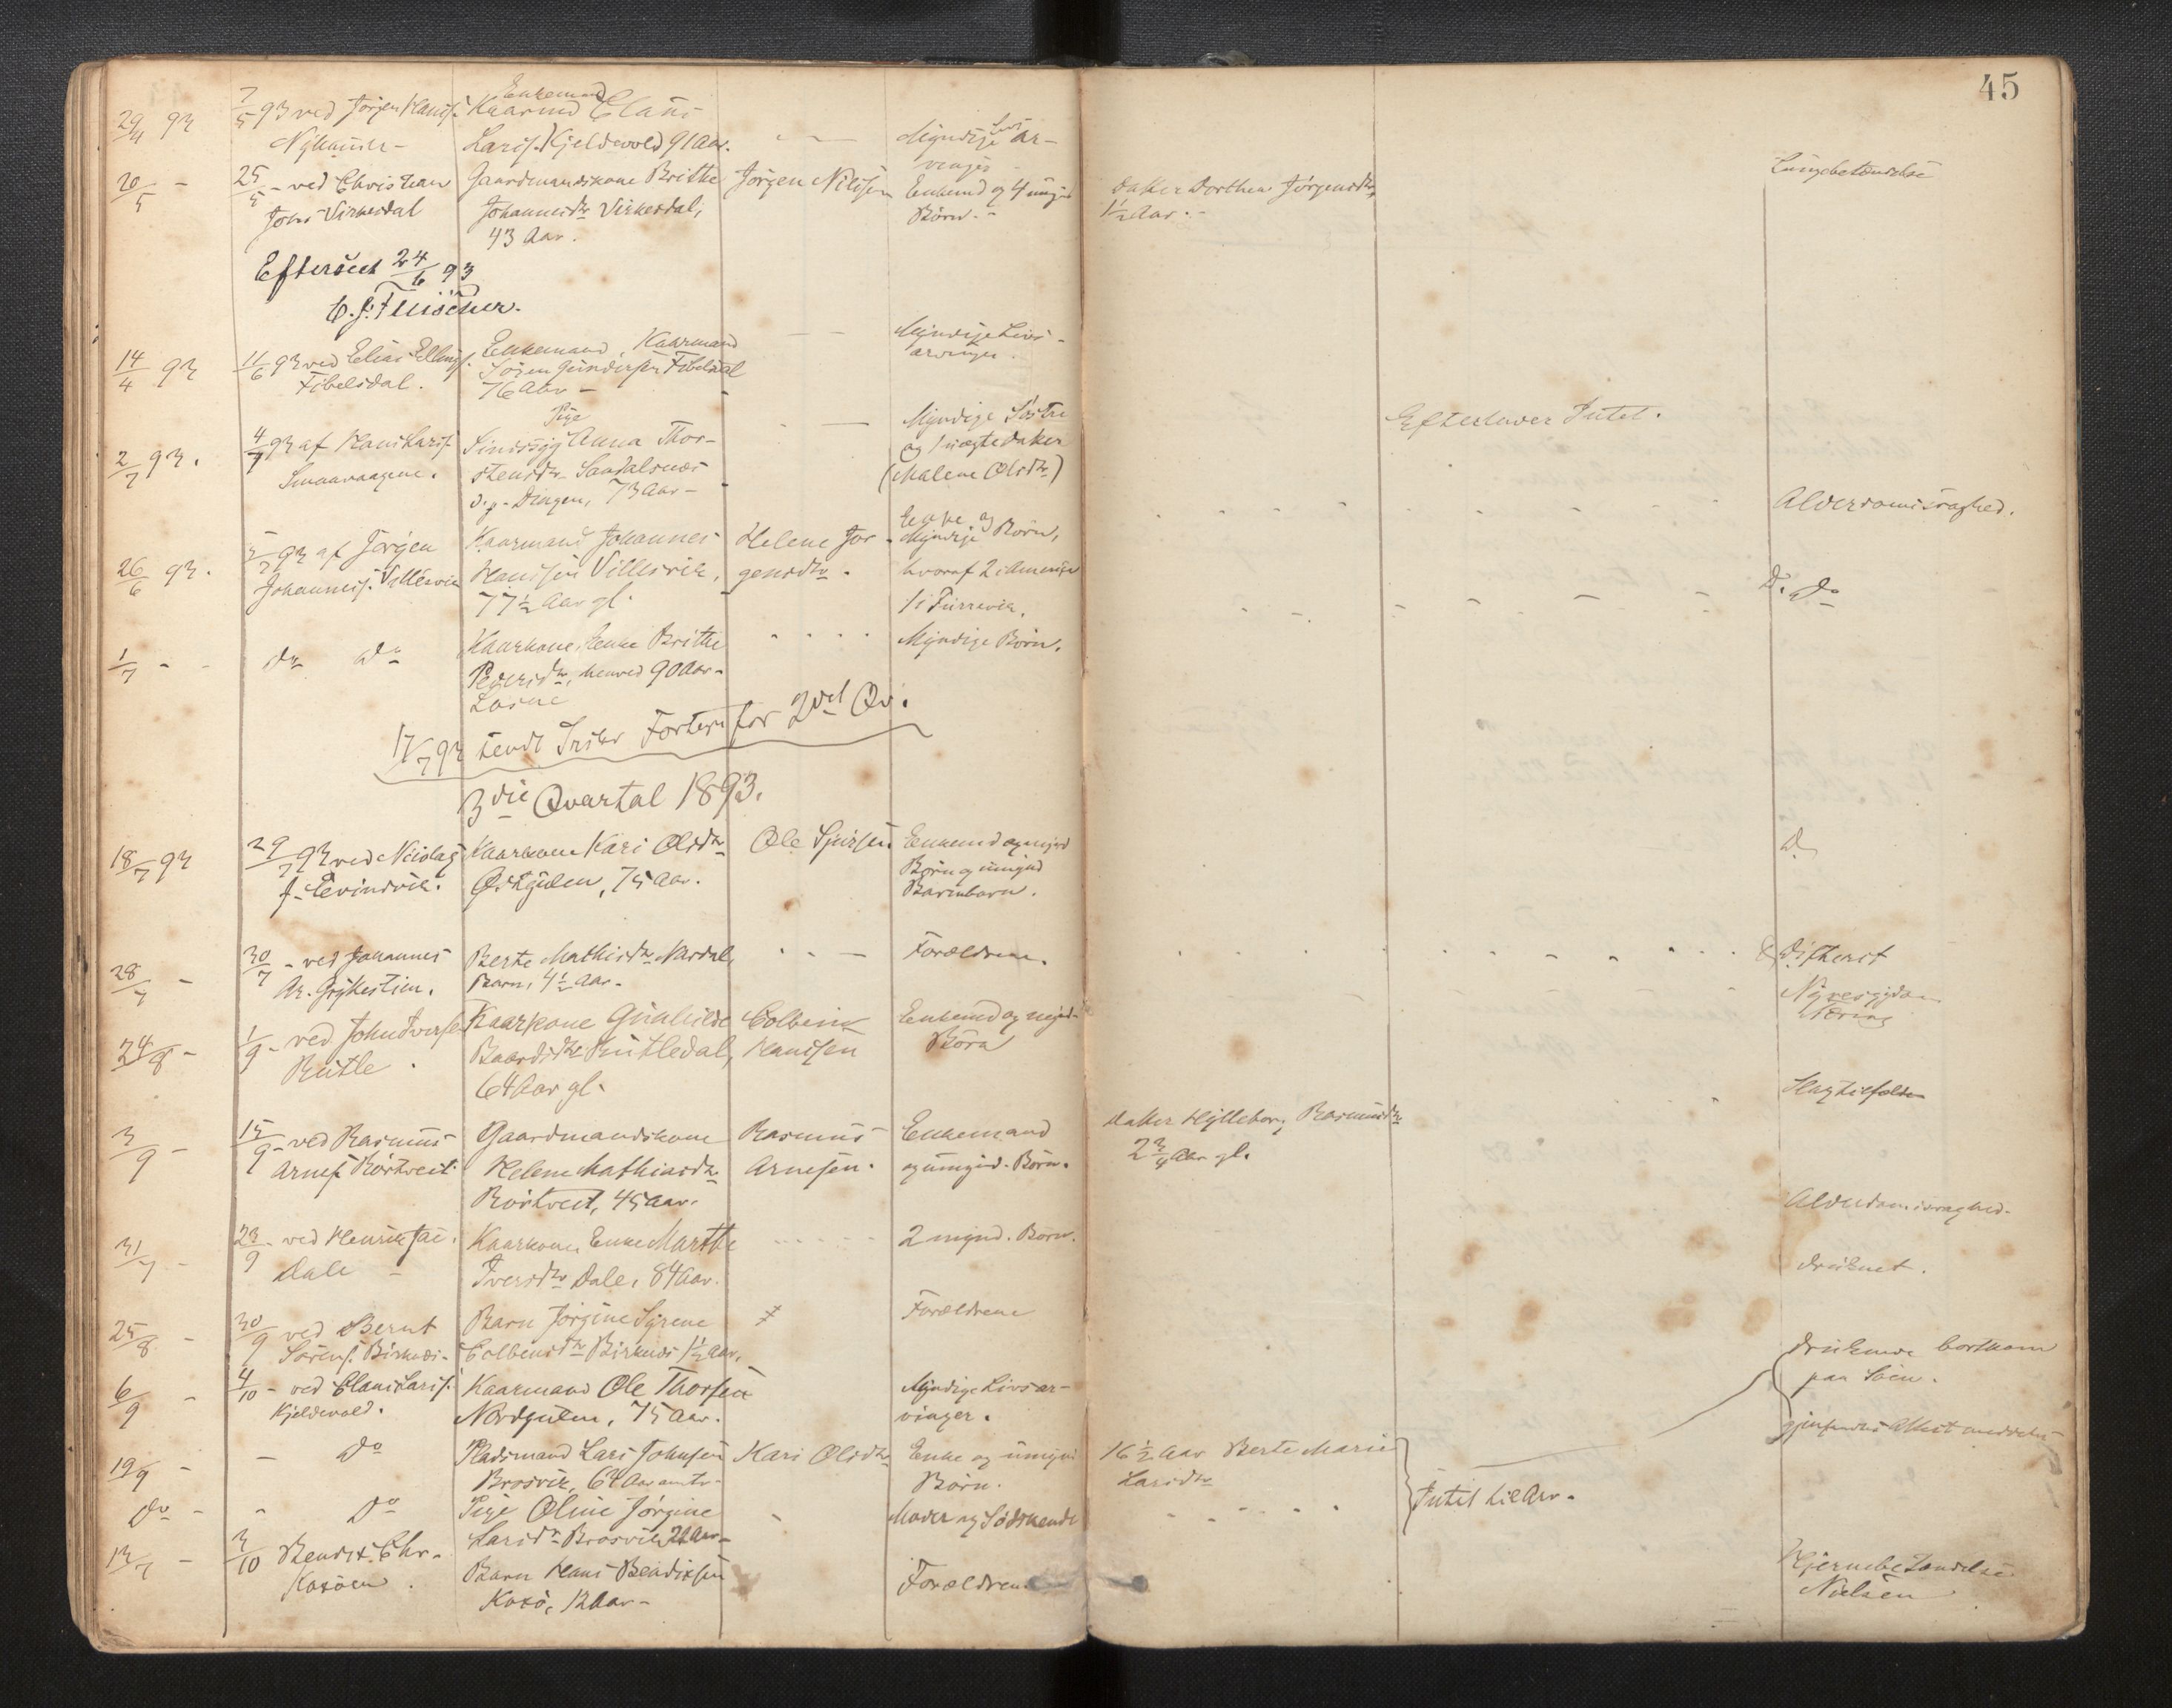 45
29/4 93
7/5 93 ved Jørgen Hansf.
Nyhammer -
Enkemand
Kaarmd Claus
Larsf. Kjeldevold 91 Aar.
Myndige Livsar-
vinger
20/5 -
25/5 - ved Christian
Johns Virkesdal
Gaardmandskone Brithe
Johannesdtr Virkesdal,
43 Aar.
Jørgen Nilsen
Enkemd og 4 umynd
Børn. -
Datter Dorthea Jørgensdtr,
1½ Aar. -
Lungebetændelse
Efterseet 24/6 93
C. F. Fleischer.
14/4 93
11/6 93 ved Elias Ellingf.
Fibelsdal.
Enkemand, Kaarmand
Søren Gundersen Fibelsdal
76 Aar -
Myndige Livs-
arvinger.
2/7 93.
4/7 93 af Hans Larsf.
Smaavaagene.
Pige
Sindssyg Anna Thor-
stensdtr Sandalsnæs
d. g. Dingen, 73 Aar -
Myndige Søstre
og 1 uægte Datter
(Malene Olsdtr)
Efterlader Intet.
Alderdomssvaghed.
26/6 93.
5/7 93 af Jørgen
Johannesf. Villesvik
Kaarmand Johannes
Hansen Villesvik,
77½ Aar gl.
Helene Jør-
gensdtr.
Enke og
Myndige Børn,
hvoraf 2 i Amerika
1 i Furrevik.
Do
1/7 - -
Do Do
Kaarkone, Enke Brithe
Pedersdtr, henved 90 Aar -
Losne
Myndige Børn.
17/7 93 sendt Skifter Forten for 2det Qv.
3die Quartal 1893.
18/7 93
29/7 93 ved Nicolay
J. Eivindvik.
Kaarkone Kari Olsdtr
Østgulen, 75 Aar.
Ole Sjursen
Enkemd og mynd
Børn og umynd
Barnebarn.
D.
28/7 -
30/7 - ved Johannes
Ar. Grytestien.
Berte Mathisdtr Nordal,
Barn, 4½ Aar.
Forældrene.
Difterit
24/8 -
1/9 - ved John Iversen
Rutle.
Kaarkone Gunhilde
Baardsdtr Rutledal,
64 Aar gl.
Colbein
Hansen
Enkemd og mynd.
Børn
Nyresygdom
Tæring
3/9 -
15/9 - ved Rasmus
Arnesf. Rörtveit.
Gaardmandskone
Helene Mathiasdtr
Rörtveit, 45 Aar.
Rasmus
Arnesen.
Enkemand
og umynd. Børn.
Datter Hylleborg Rasmusdtr
2¾ Aar gl.
Slagtilfælde
31/7 -
23/9 - ved Henrik Jac.
Dale -
Kaarkone, Enke Marthe
Iversdtr Dale, 84 Aar.
2 mynd. Børn.
Alderdomssvaghed.
25/8 -
30/9 ved Bernt
Sörensf. Birknæs -
Barn Jørgine Syrene
Colbensdtr Birknæs 1½ Aar.
Forældrene
druknet.
6/9 -
4/10 - ved Claus Larsf.
Kjeldevold.
Kaarmand Ole Thorsen
Nordgulen, 75 Aar.
Myndige Livsar-
vinger.
druknede bortkom
paa Søen.
19/9 -
- Do
Pladsmand Lars Johnsen
Brosvik, 67 Aar
Kari Olsdtr
Enke og umynd
Børn.
16½ Aar Berte Marie
Larsdtr
Intet til Arv.
Do -
- Do
Pige Oline Jørgine
Larsdtr Brosvik, 21 Aar -
Moder og Södskende
13/7 -
3/10 Bendix Chr.
Koxöen.
Barn Hans Bendixsen
Koxö, 12 Aar -
Forældrene
Hjernebetændelse
Nielsen